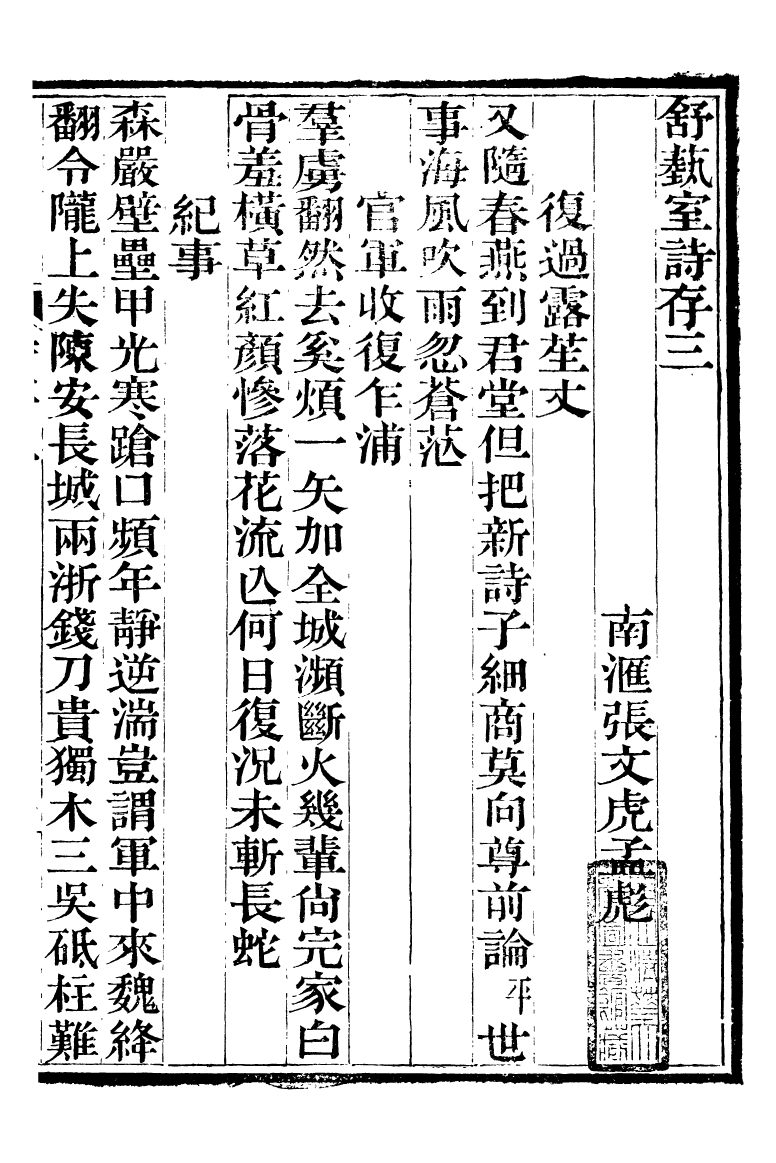 舒蓺室詩存三
南滙張文虎孟彪
復過露笙丈
又隨春燕到君堂但把新詩子細商莫向尊前論平世
事海風吹雨忽蒼茫
官軍收復乍浦
羣虜翻然去奚煩一矢加全城瀕斷火幾輩尙完家白
骨羞橫草紅顏慘落花流亾何日復況未斬長蛇
紀事
森嚴壁壘甲光寒蹌口頻年靜逆湍豈謂軍中來魏絳
翻令隴上失陳安長城兩浙錢刀貴獨木三吳砥柱難